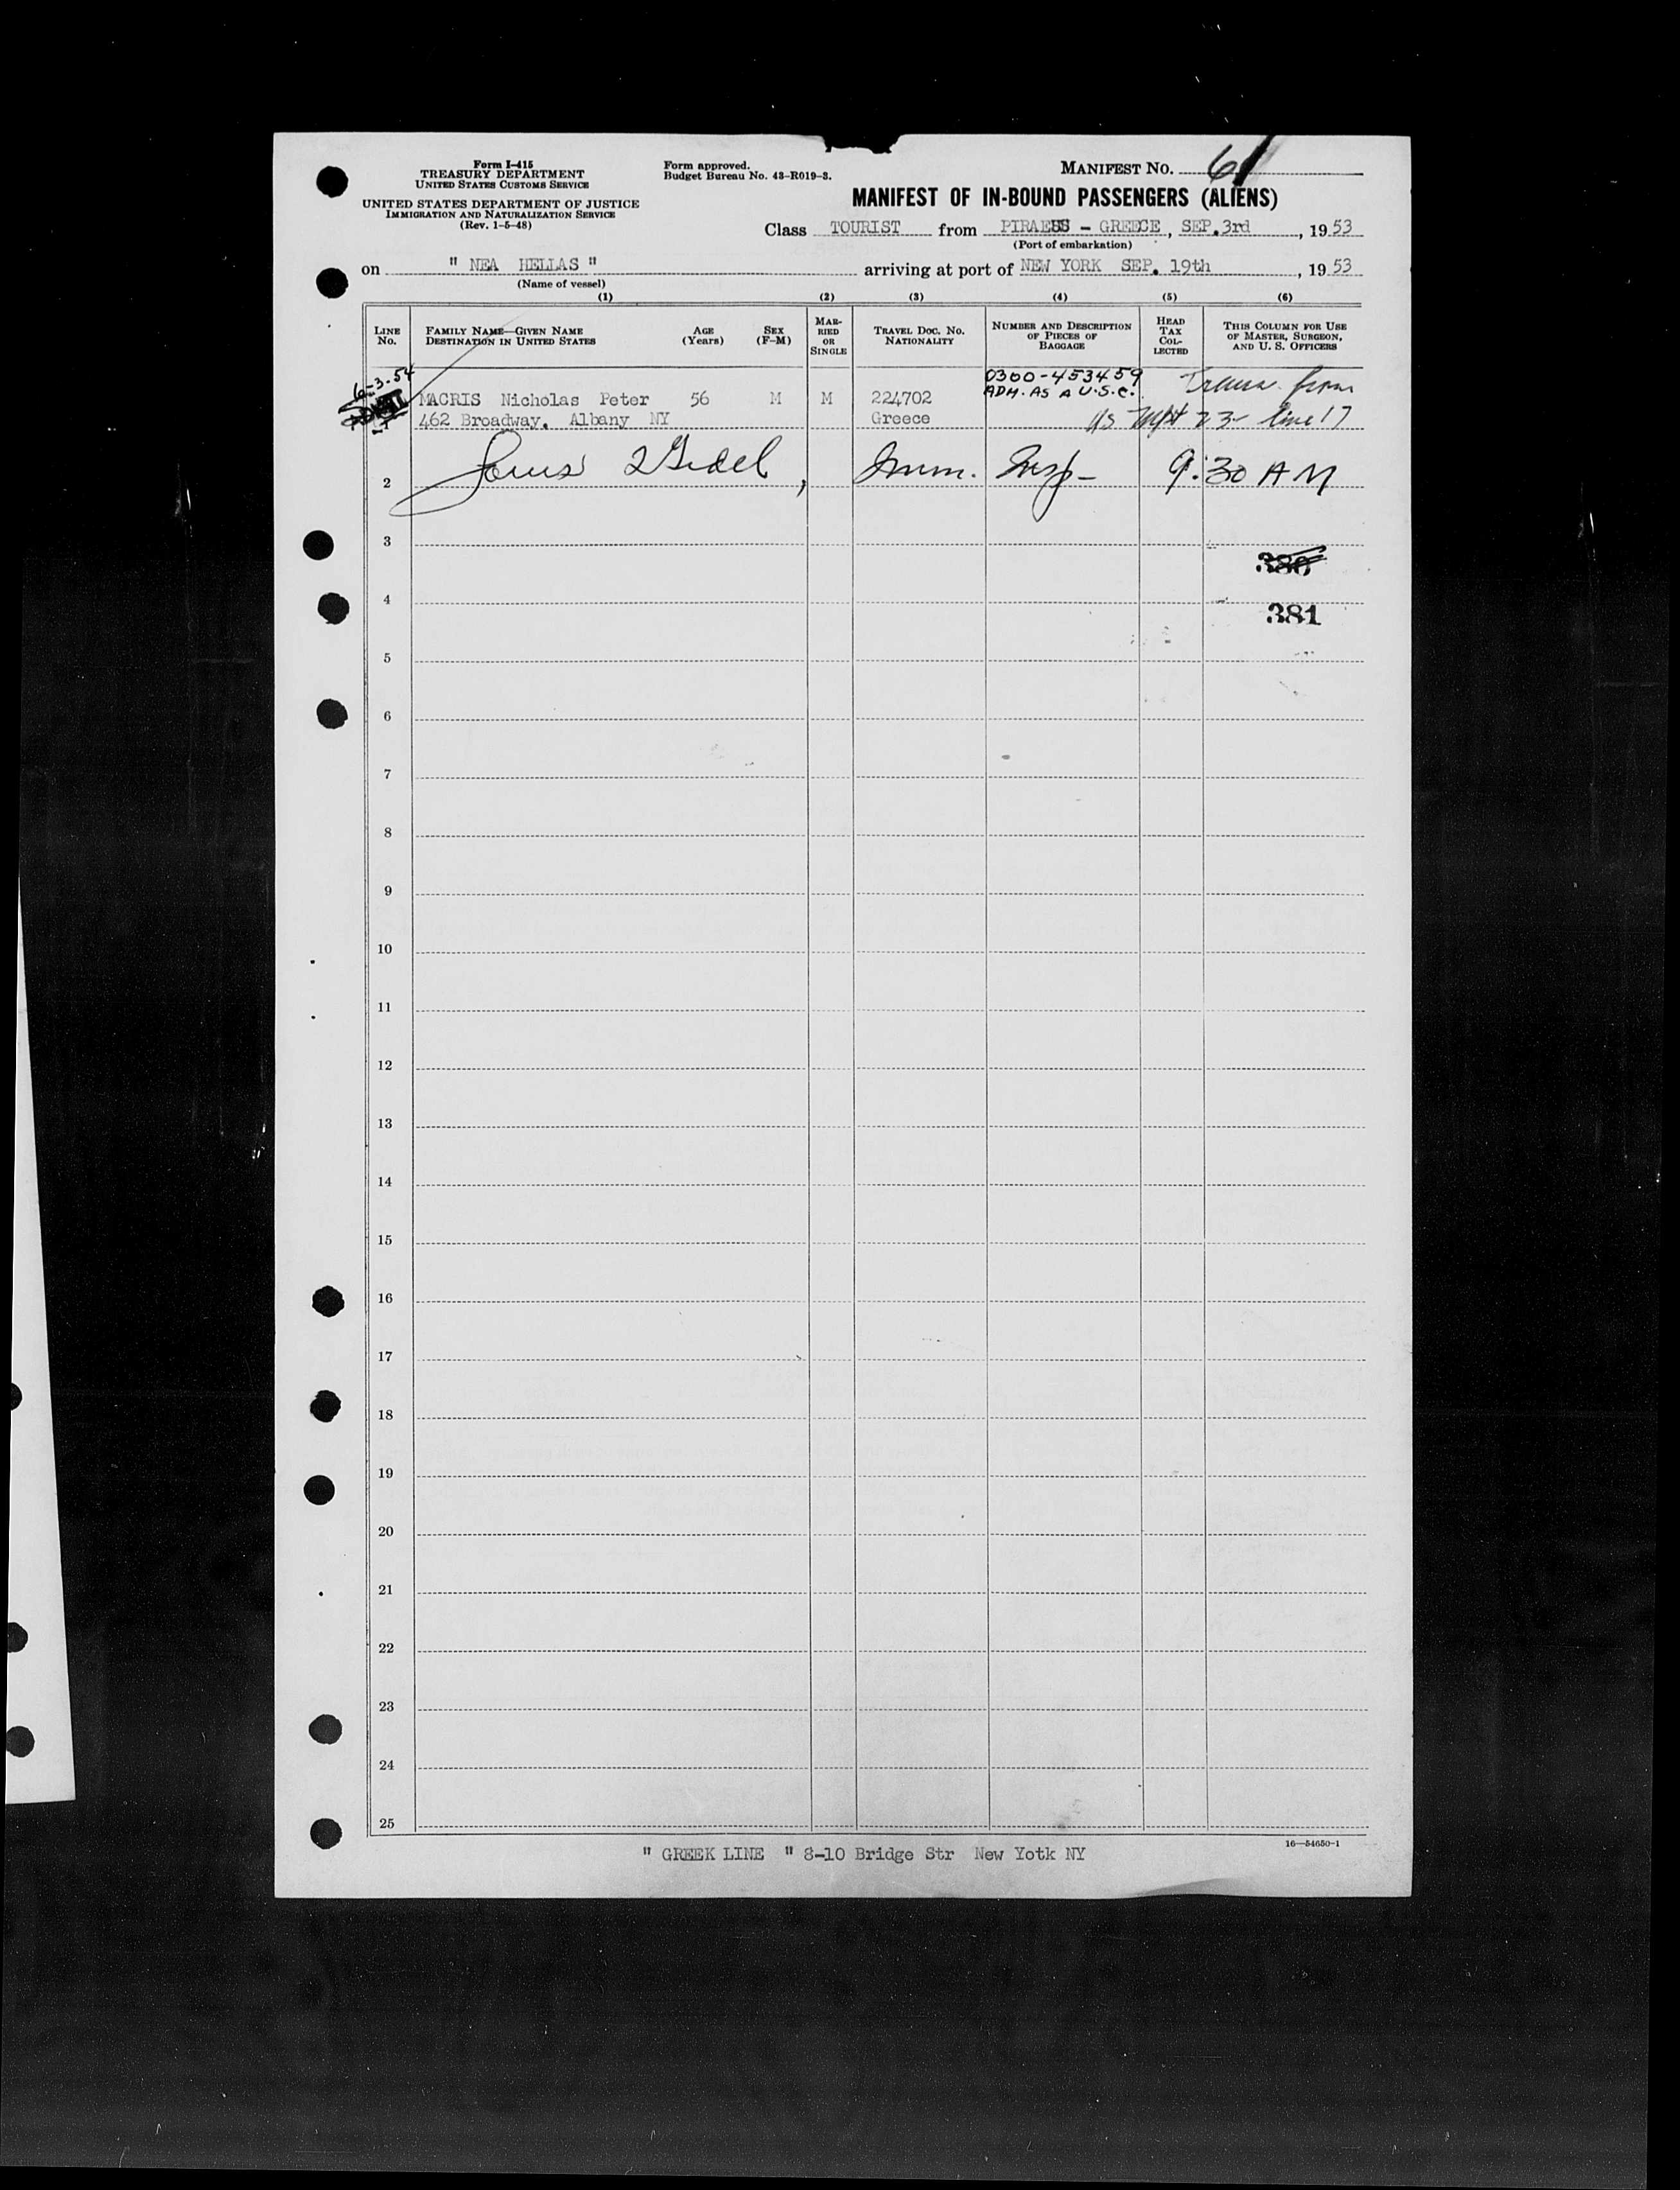 Form I-415
TREASURY DEPARTMENT
UNITED STATES CUSTOMS SERVICE
UNITED STATES DEPARTMENT OF JUSTICE
IMMIGRATION AND NATURALIZATION SERVICE
(Rev. 1-5-48)
Form approved.
Budget Bureau No. 43-R019-3.
MANIFEST NO. 61
MANIFEST OF IN-BOUND PASSENGERS (ALIENS)
Class TOURIST from PIRAEUS - GREECE, SEP.3rd, 1953
(Port of embarkation)
on " NEA HELLAS " arriving at port of NEW YORK SEP. 19th, 1953
(Name of vessel)
(1) (2) (3) (4) (5) (6)
LINE No. FAMILY NAME—GIVEN NAME DESTINATION IN UNITED STATES AGE (Years) SEX (F-M) MARRIED OR SINGLE TRAVEL DOC. NO. NATIONALITY NUMBER AND DESCRIPTION OF PIECES OF BAGGAGE HEAD TAX COLLECTED THIS COLUMN FOR USE OF MASTER, SURGEON, AND U. S. OFFICERS
6-3-54 0300-453459
ADM. AS A U.S.C. Trans. from
MACRIS Nicholas Peter 56 M M 224702
462 Broadway. Albany NY Greece US Mft 23 line 17
2 Imm. Insp- 9:30 AM
3
380
4
381
5
6
7
8
9
10
11
12
13
14
15
16
17
18
19
20
21
22
23
24
25
16—54650-1
" GREEK LINE " 8-10 Bridge Str New Yotk NY